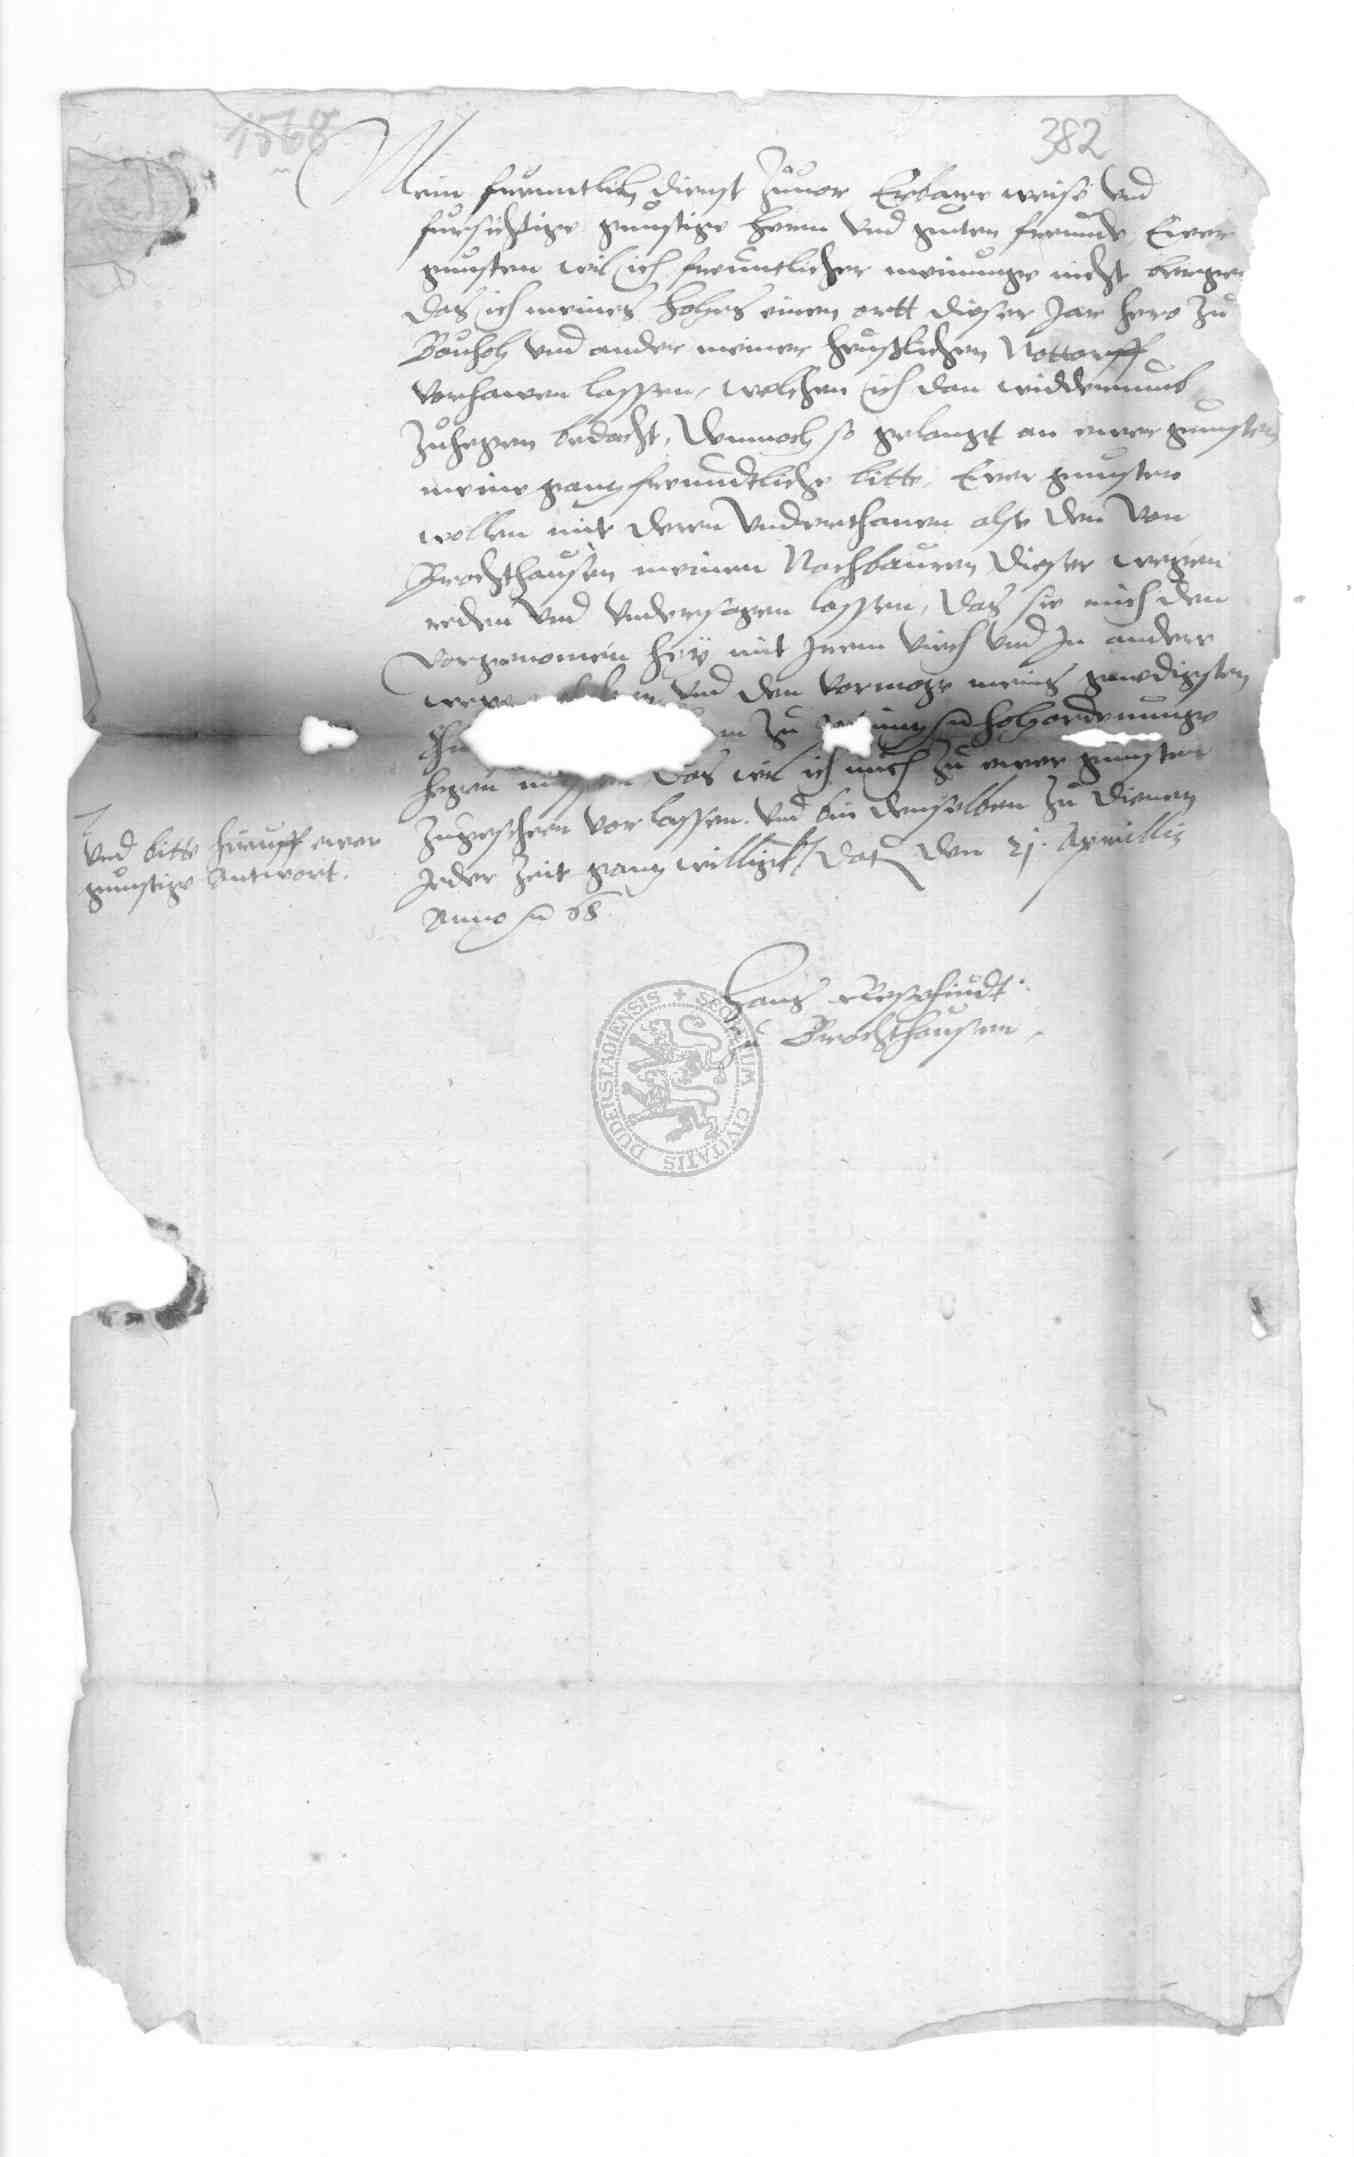 1568
382
Mein freuntlich dienst zuuor Erbare weise vnd
fursichtige gunstige hern vnd guten freunde, Ewer
gunsten wil ich freuntlicher meinunge nicht bergen
das ich meines holzes einen ortt dieser Jar hero zu
Bauholz vnd ander meiner heußlichen Nottorff
verhawen lassen, welchen ich dan widderumb
zuhegen bedacht, Demnoch so gelangt an ewer gunsten
meine ganz freundtliche bitte, Ewer gunsten
wollen mit deren Vnderthanen alse den von
Brochthausen meinen Nachbauren dieser wegen
reden vnd vndersagen lassen, das sie mich den
vorgenomen heÿ mit Jrem viech vnd In andere
wege vnd den vormoge meins gnedigsten
zu holzordenunge
hegen das wil ich mich zu ewer gunsten
zugeschehen vorlassen. vnd bin denselben zu dienen
Jeder Zeit ganz willigk / Dat den 21. Aprillis
Anno 68
vnd bitte hirauff ewer
gunstige Antwort.
Hans
zu Brochthausen
SECRETUM CIVITATIS DUDERSTADIENSIS